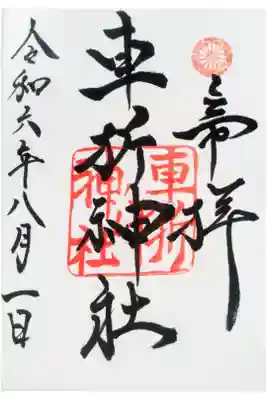 奉拝
車折神社
車折
神社
令和六年八月一日